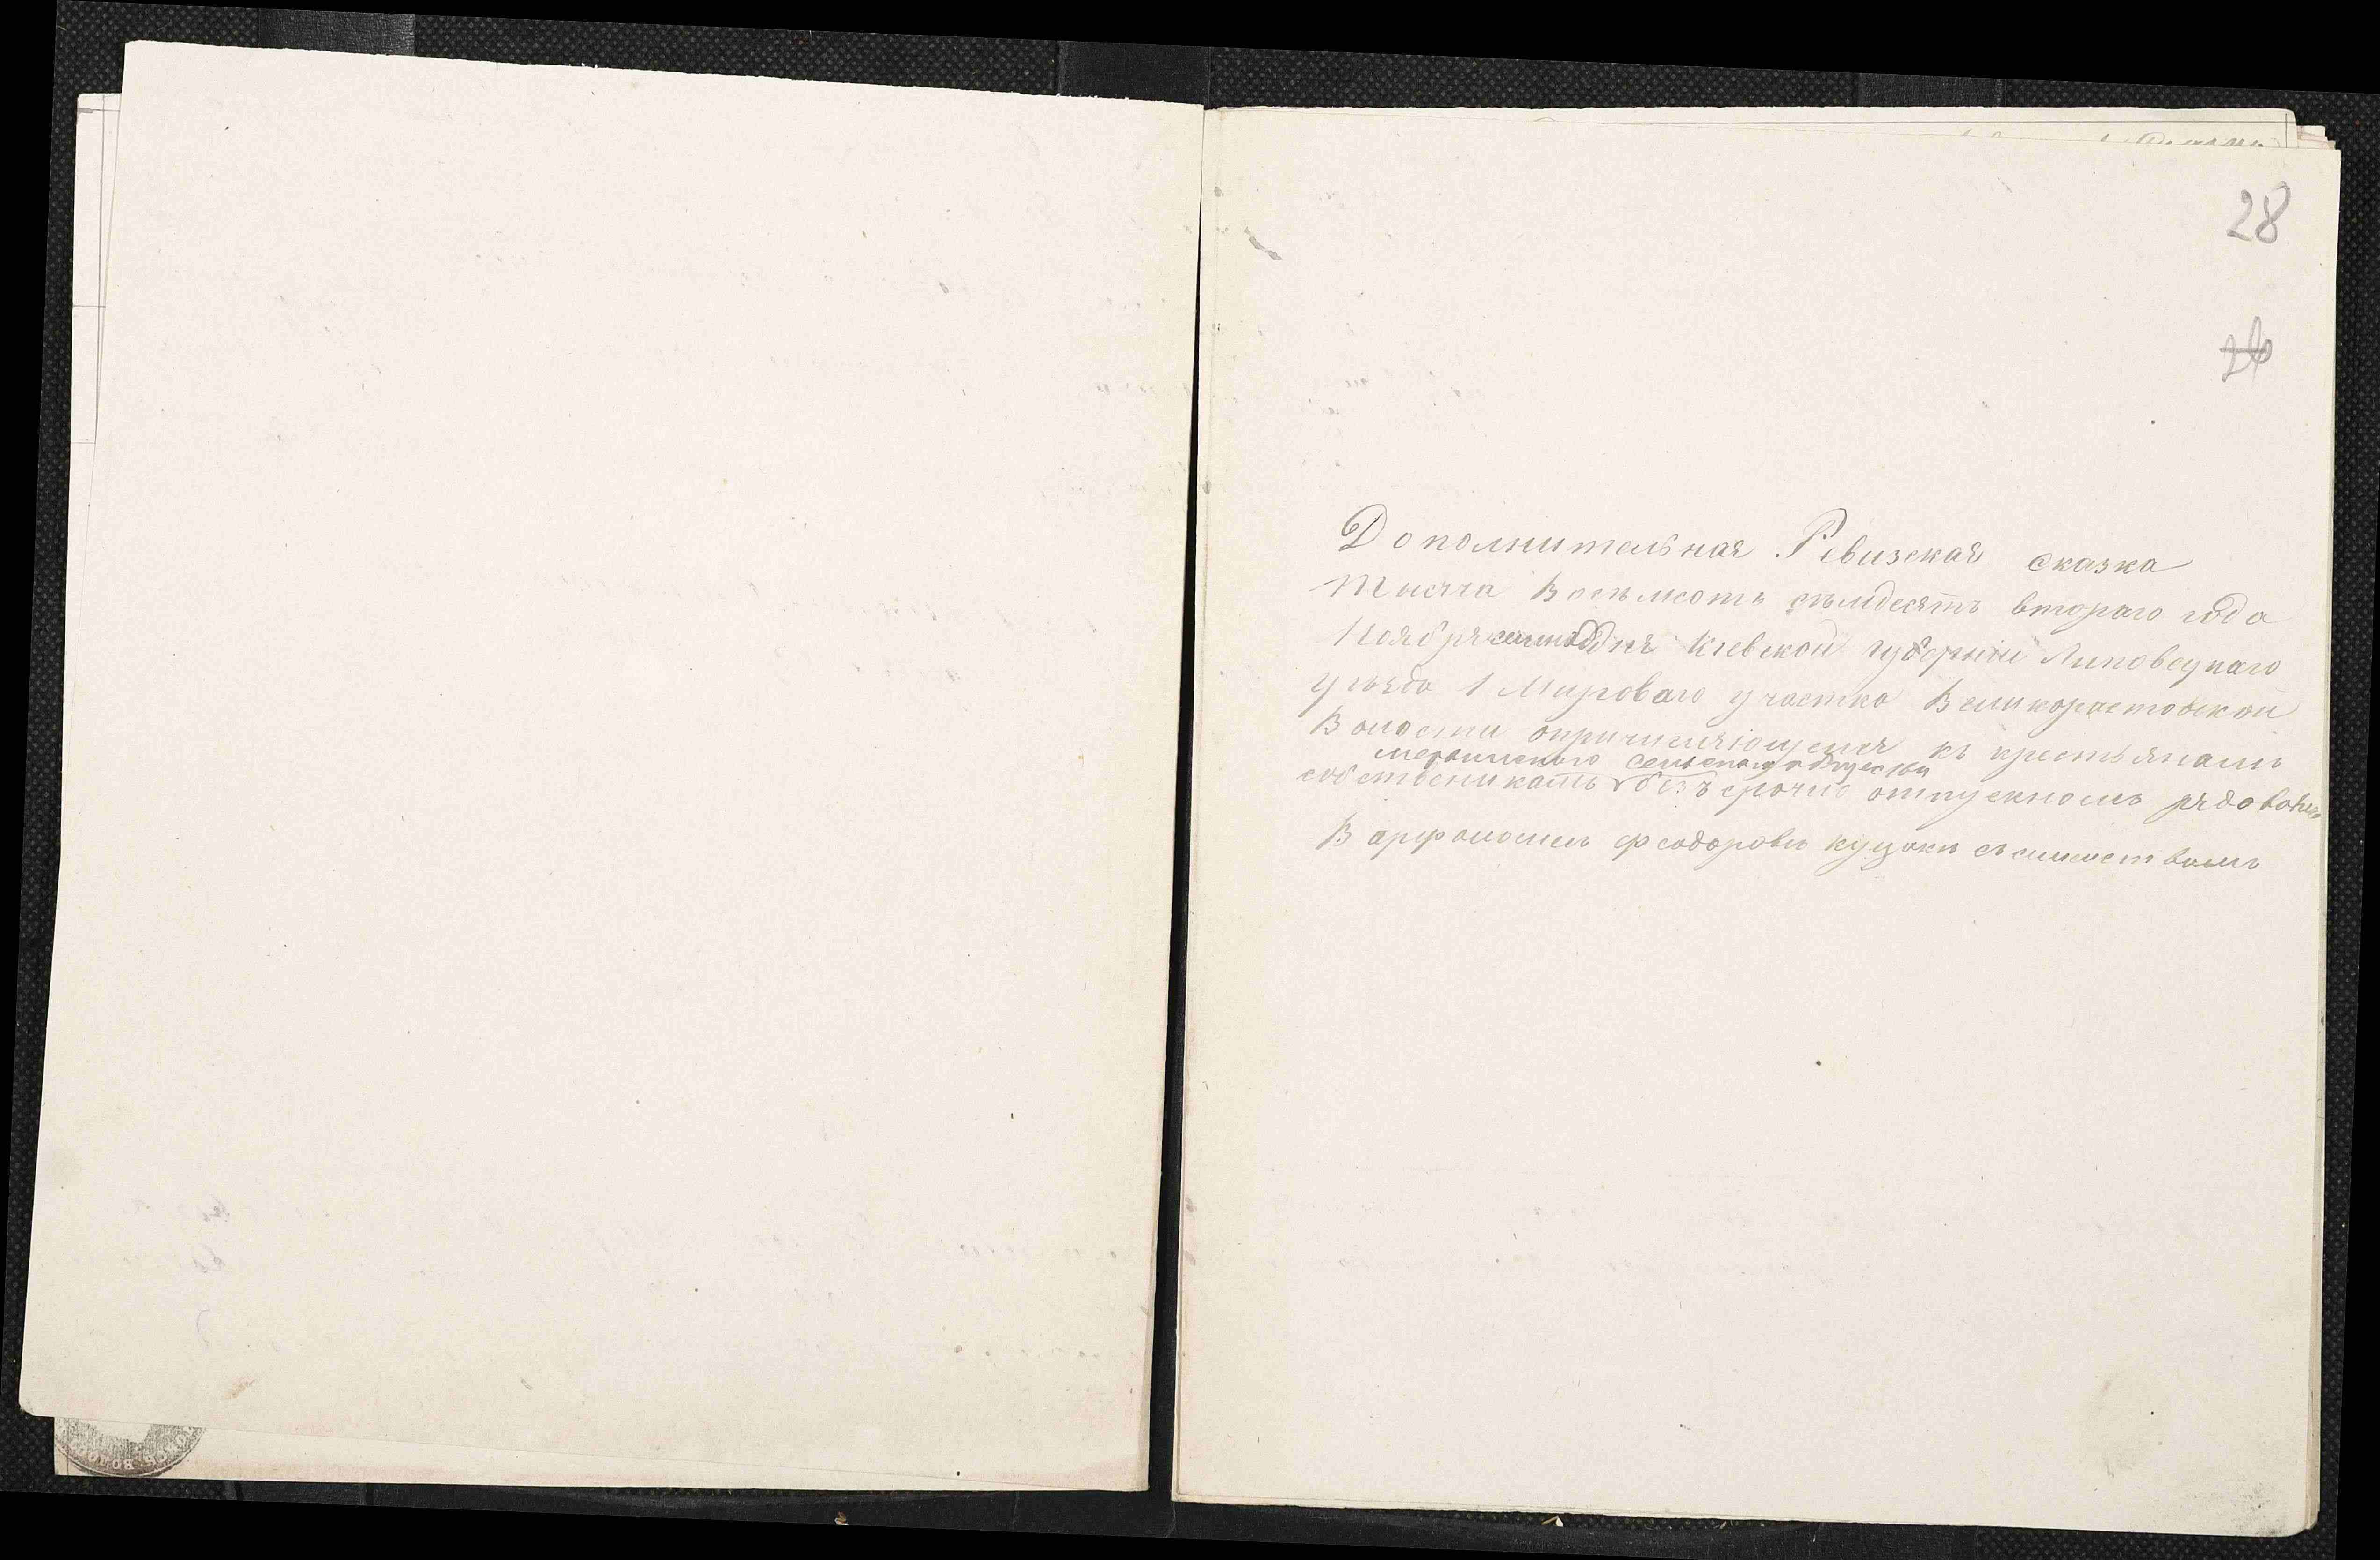 28
26
Дополнительная Ревизская сказка
Тисяча Восемсотъ семдесятъ втораго года
Ноября дня Кіевской губерніи Липовецкаго
уезда 1 Мироваго участка Великоростовской
Волости опричисляющемся къ крестьянамъ
сельскаго общества
собственикамъ безъ срочно отпускномъ рядовомъ
Варфоломеи Феодорови Куцоки съ семействомъ